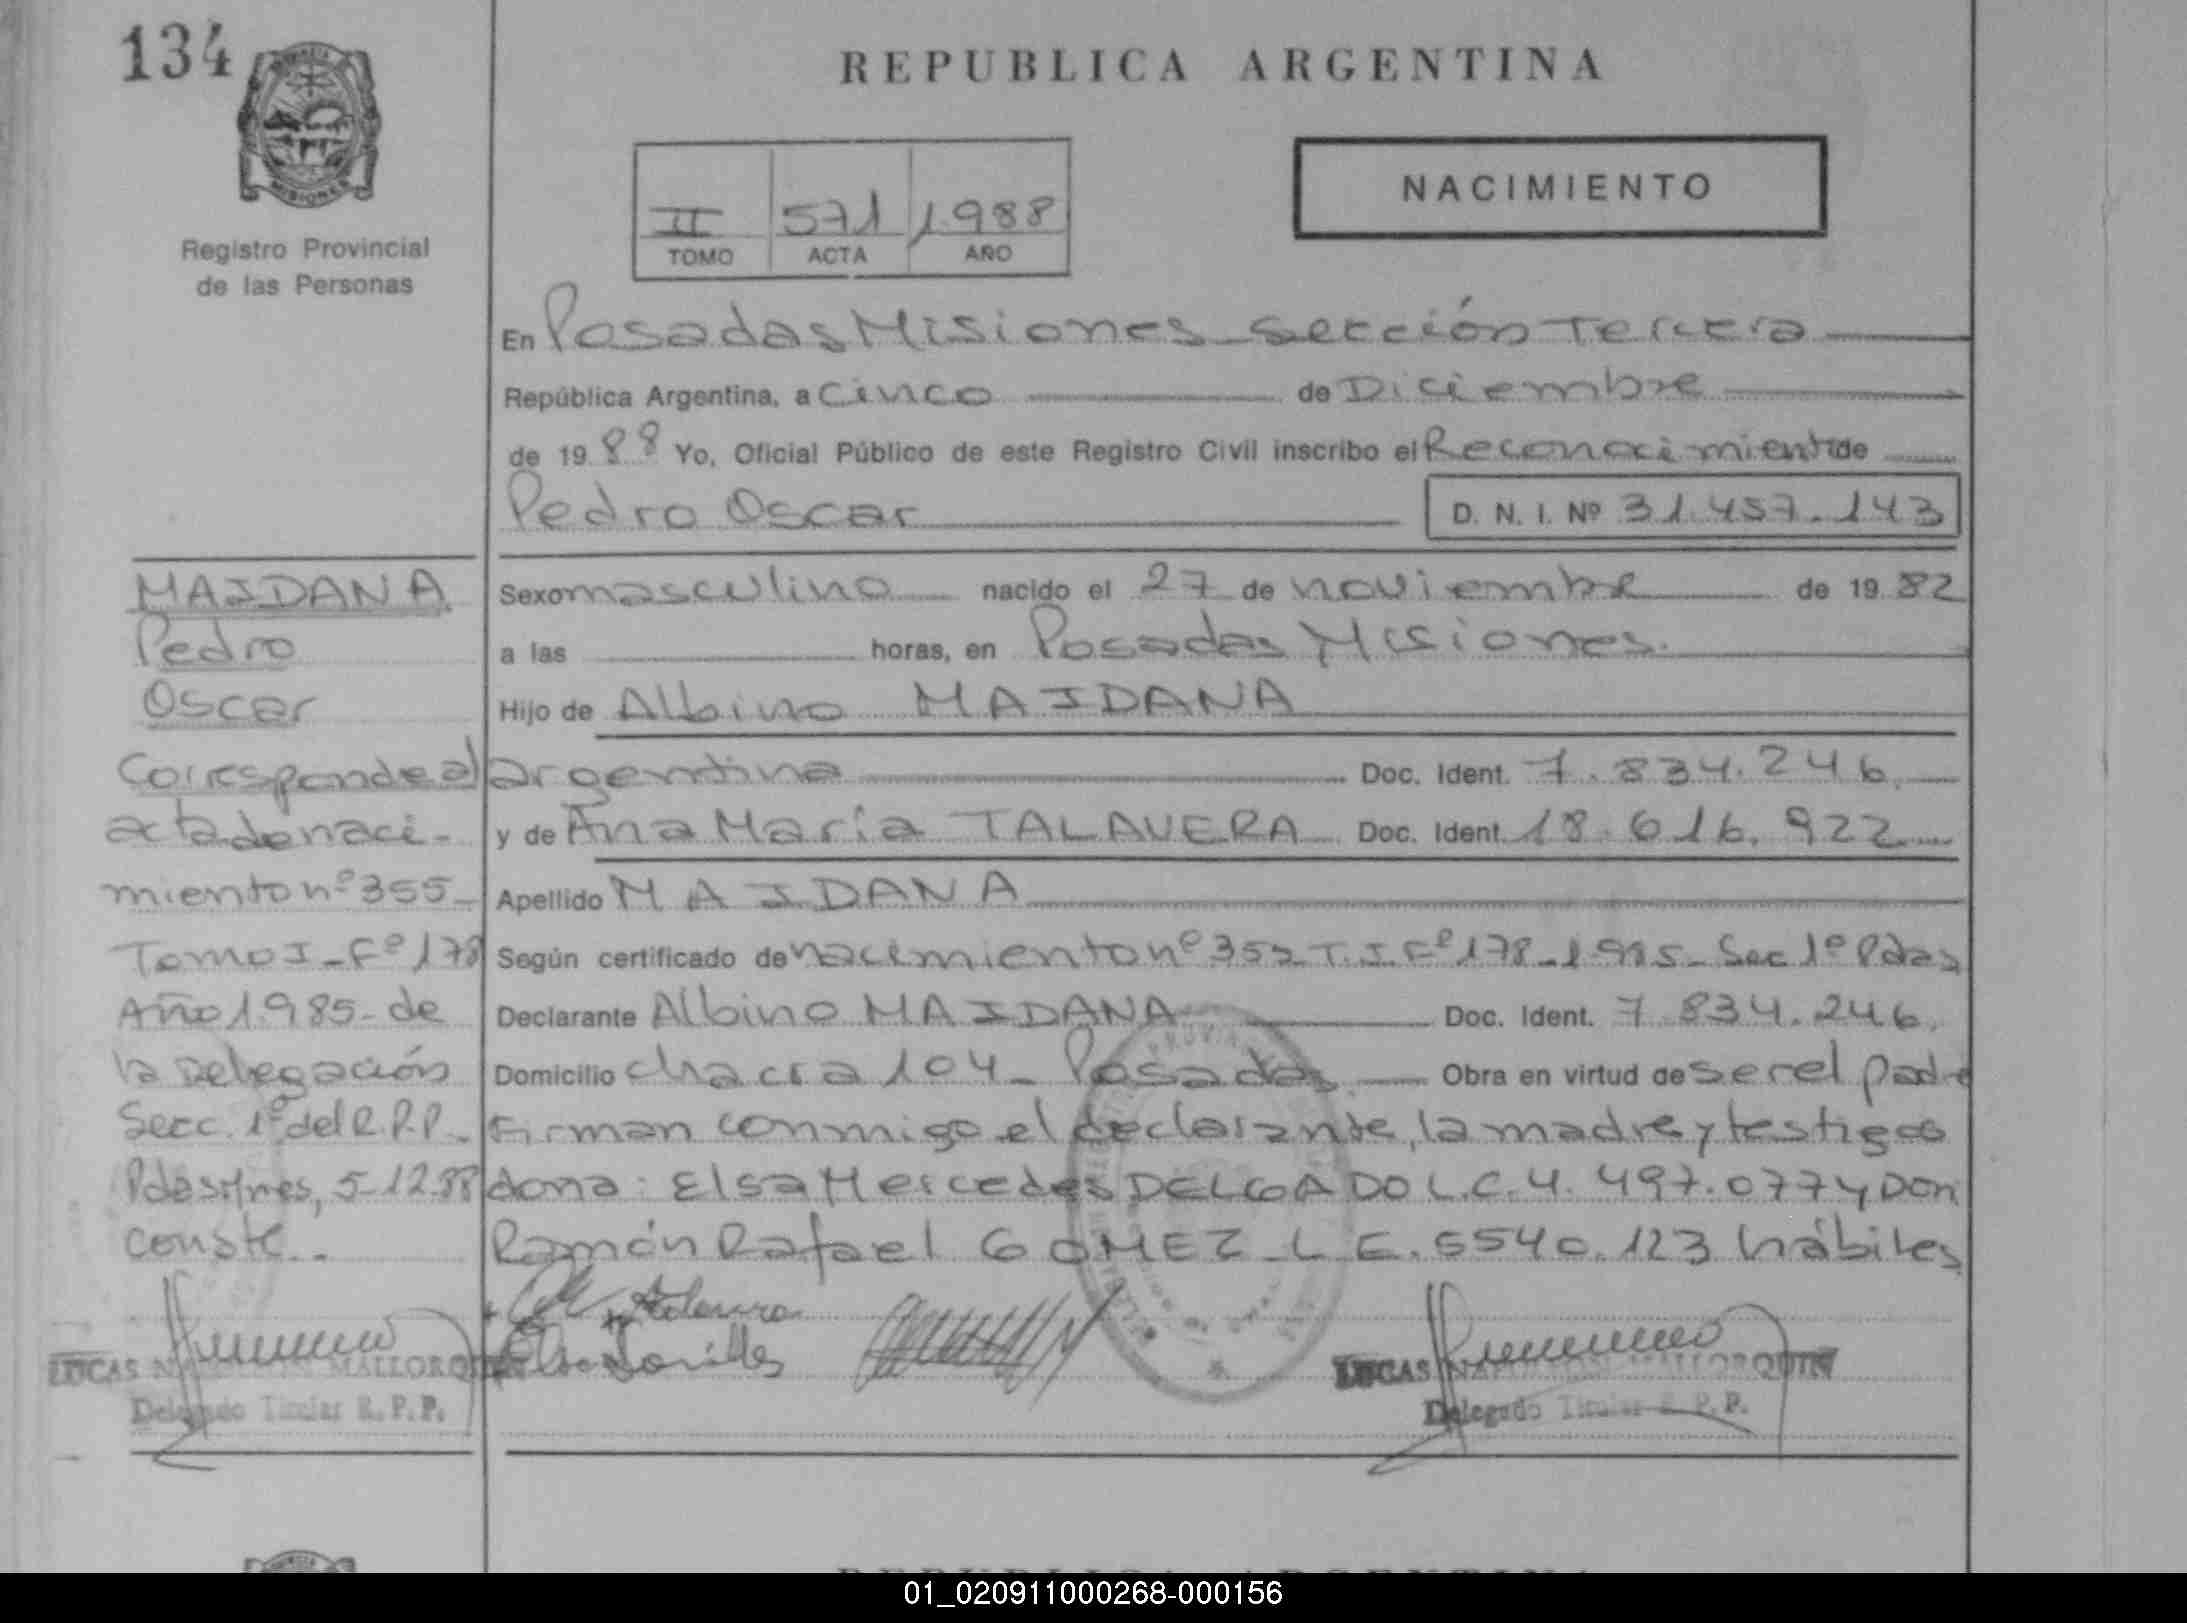 134
REPUBLICA ARGENTINA
II 571 1.988
TOMO ACTA AÑO
NACIMIENTO
Registro Provincial
de las Personas
En Posadas Misiones - Sección Tercera
República Argentina, a Cinco de Diciembre
de 19 88 Yo, Oficial Público de este Registro Civil inscribo el Reconocimiento de
Pedro Oscar D. N. I. Nº 31.457.143
Sexo masculino nacido el 27 de noviembre de 19 82
a las horas, en Posadas Misiones.
Hijo de Albino MAIDANA
argentina Doc. Ident. 7.834.246.
y de Ana María TALAVERA Doc. Ident. 18.616.922
Apellido MAIDANA
Según certificado de nacimiento nº T.I. Fº 178 - 1.985 - Sec 1º Pdas
Declarante Albino MAIDANA Doc. Ident. 7.834.246.
Domicilio Chacra 104 - Posadas Obra en virtud de ser el padre
Firman conmigo el declarante, la madre y testigos
dona: Elsa Mercedes DELGADO L.C. 4.497.077 y Don
Ramón Rafael GOMEZ L E. 5540.123 hábiles
MAIDANA
Pedro
Oscar
Corresponde al
acta de naci-
miento nº 355-
Tomo I - Fº 178
Año 1.985 - de
la Delegación
Secc. 1º del R.P.P.-
Pdas Mnes, 5-12-88
conste..
LUCAS MALLORQUIN
Delegado Titular R. P. P.
LUCAS MALLORQUIN
Delegado Titular R. P. P.
01_020911000268-000156